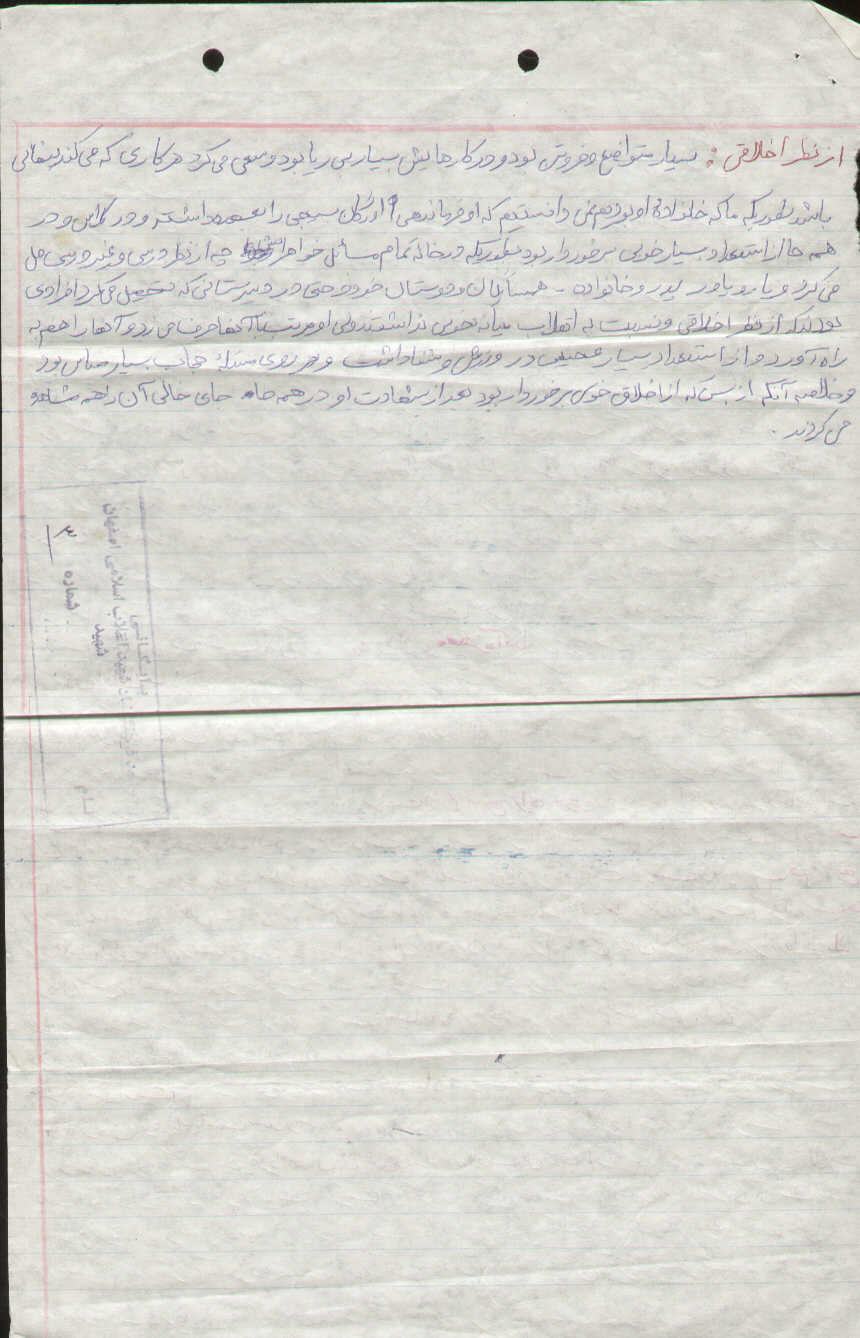 از نظر اخلاقی : بسیار متواضع و فروتن بود و در کارهایش بسیار بی ریا بود و سعی می کرد هر کاری که می کند پنهانی
باشد بطوریکه ما که خانواده او بودیم نمی دانستیم که او فرماندهی گردان بسیجی را بعهده داشته و در کلاس و در
همه جا از استعداد بسیار خوبی برخوردار بود بطوریکه در خانه تمام مسائل خواهرانش چه از نظر درسی و غیر درسی حل
می کرد و یار و یاور پدر و خانواده - همسایگان و دوستان خود و حتی در دبیرستانی که تحصیل می کرد افرادی
بودند که از نظر اخلاقی و نسبت به انقلاب میانه خوبی نداشتند ولی او مرتب با آنها حرف می زد و آنها را هم به
راه آورد و از استعداد بسیار عجیبی در ورزش و شنا داشت و بر روی مسئله حجاب بسیار حساس بود
و خلاصه آنکه از بس که از اخلاق خوبی برخوردار بود بعد از شهادت او در همه جا جای خالی آن را همه مشاهده
می کردند .
بایگانی
انقلاب اسلامی اصفهان
شهید
شماره ۳
نام